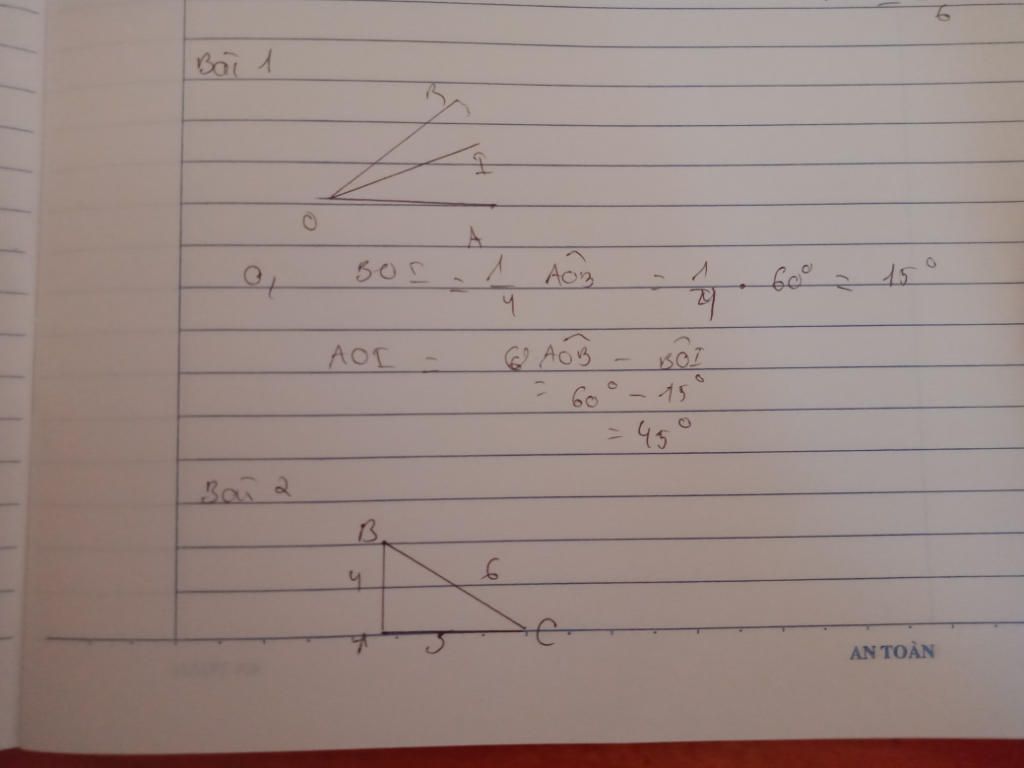 6
Bài 1
B
I
O
A
a, BOI = 1/4 AÔB = 1/4 . 60° = 15°
AOI = AÔB - BÔI
= 60° - 15°
= 45°
Bài 2
B
4 6
A 5 C
AN TOÀN